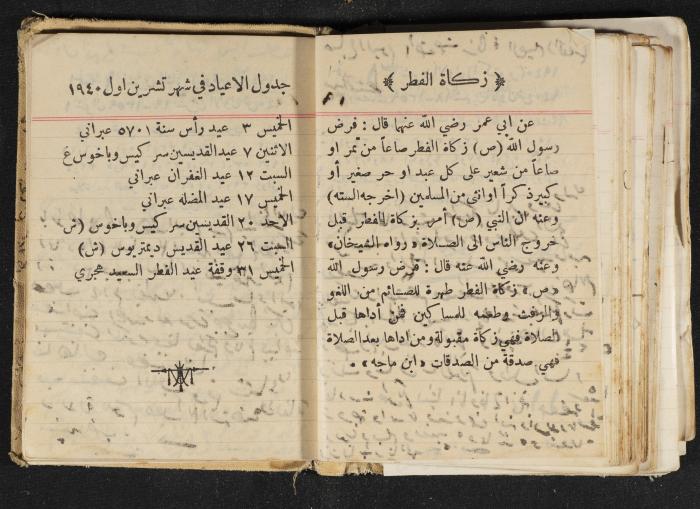 ﴿ زكاة الفطر ﴾
عن ابي عمر رضي الله عنهما قال : فرض
رسول الله (ص) زكاة الفطر صاعاً من تمر او
صاعاً من شعير على كل عبد او حر صغير أو
كبير ذكراً او انثى من المسلمين (اخرجه الستة)
وعنه ان النبي (ص) أمر بزكاة الفطر قبل
خروج الناس الى الصلاة « رواه الشيخان»
وعنه رضي الله عنه قال : فرض رسول الله
«ص» زكاة الفطر طهرة للصائم من اللغو
والرفث وطعمه للمساكين فمن أداها قبل
الصلاة فهي زكاة مقبولة ومن اداها بعد الصلاة
فهي صدقة من الصدقات « ابن ماجه » .
جدول الاعياد في شهر تشرين اول ١٩٤٠
الخميس ٣ عيد رأس سنة ٥٧٠١ عبراني
الاثنين ٧ عيد القديسين سركيس وباخوس غ
السبت ١٢ عيد الغفران عبراني
الخميس ١٧ عيد المضله عبراني
الاحد ٢٠ القديسين سركيس وباخوس (ش)
السبت ٢٦ عيد القديس ديمتريوس (ش)
الخميس ٣١ وقفة عيد الفطر السعيد هجري